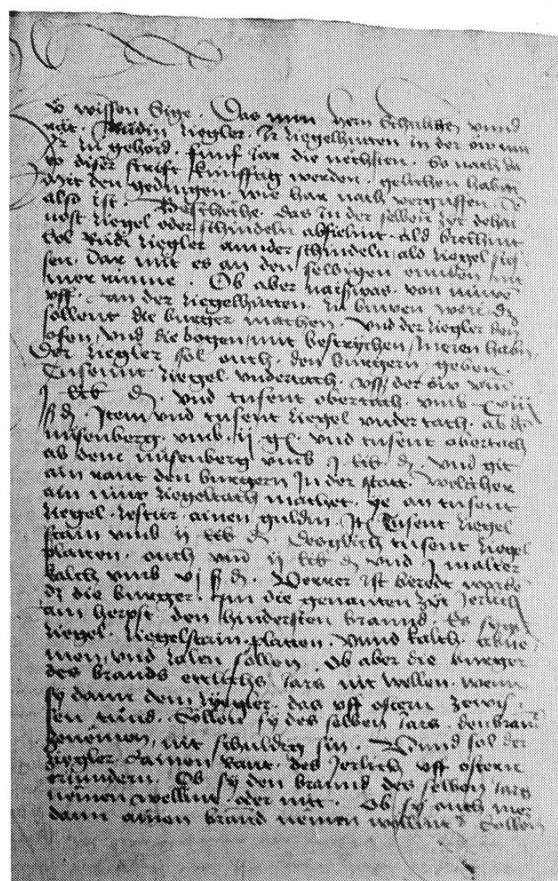 zů wissen Sige. Das min hern Schulthes vnnd
Rät. Rüdin ziegler. Ir ziegelhütten in der öw
Ir zů gehörd. fünf Jar die nechsten. So nach
diser schrift künfftig werden. gelichen haben
mit den gedingen. wie har nach vergriffen.
also ist. Beschehe. das in der selben zit
ziegel oder schindeln abfielint. ald brechint
Sol Rüdi ziegler annder schindeln, ald ziegel
sen. Dar mit es an den selbigen enden nit
Jnner rinne. Ob aber nachwas. von nüwe
vff. an der ziegelhütten. zů buwen were. dz
sollent die burger machen. vnd der ziegler den
ofen, vnd die bogen, mit bestrychen, Inneren haben,
Der ziegler sol ouch. den burgern geben.
Tusennt ziegel vndertach. vff der öw vmb
j lib d. vnd tusent obertach vmb xviij
ß d. Item vnd tusent ziegel vnder tach. ab dem
nüsenberg. vmb. ij gl. vnd tusent obertach
ab dem nüsenberg vmb j lib d. vnd git
ain rant den burgern In der statt. welicher
ain nüw ziegeltach machet. ye an tusent
ziegel. ainen guldin. Jt Tusent ziegel
stain vmb ij lib d. Desglich tusent ziegel
platten. ouch vmb ij lib d vnd j malter
kalch vmb vj ß d. Verrer ist beredt worden
dz die burger. Inn die genanten zyt Jerlich
am herpst den hindersten brannd. Es syen
ziegel. ziegelstain. platten. vnnd kalch.
men, vnd zalen söllen. Ob aber die burger
des brands ettlichs Jars nit wellen. wenn
sy dann dem ziegler. das vff ostern zewis
sen tůnd. Söllen sy des selben Jars. den brand
zenemen, nit schuldig sin. Vnnd sol der
ziegler. Ainen rant. des Jerlich vff ostern
erinndern. Ob sy den brannd des selben Jars
nemen wellint oder nit. Ob sy ouch mer
dann ainen brannd nemen wellint. Söllen